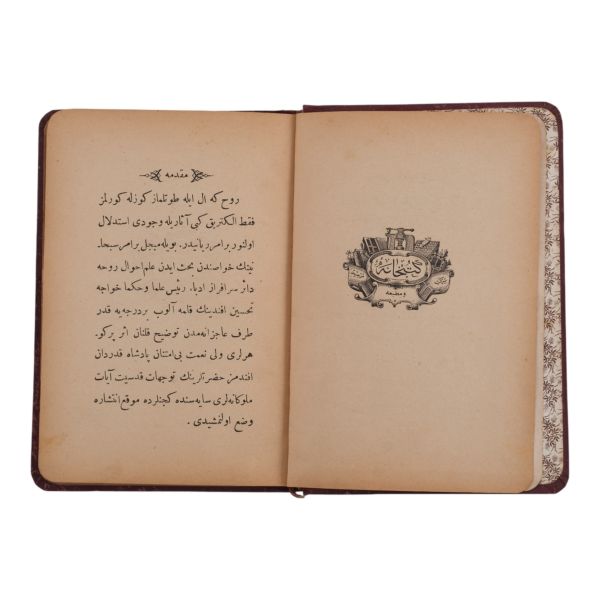 مقدمه
روح كه ال ایله طوتلماز كوزله كورلمز
فقط الكتریق كبی آثاریله وجودی استدلال
اولنور برامر ربانیدر . بویله مبجل برامر سبحا-
نینك خواصندن بحث ایدن علم احوال روحه
دائر سرافراز ادبا، رئیس علما وحكما خواجه
تحسین افندینك قلمه آلوب بردرجه‌یه قدر
طرف عاجزانه‌مدن توضیح قلنان اثر پركو-
هرلری ولی نعمت بی‌امتنان پادشاه قدردان
افندمز حضرتلرینك توجهات قدسیت آیات
ملوكانه‌لری سایه‌سنده كچنلرده موقع انتشاره
وضع اولنمشیدی .
كتبخانهٔ
و مطبعه